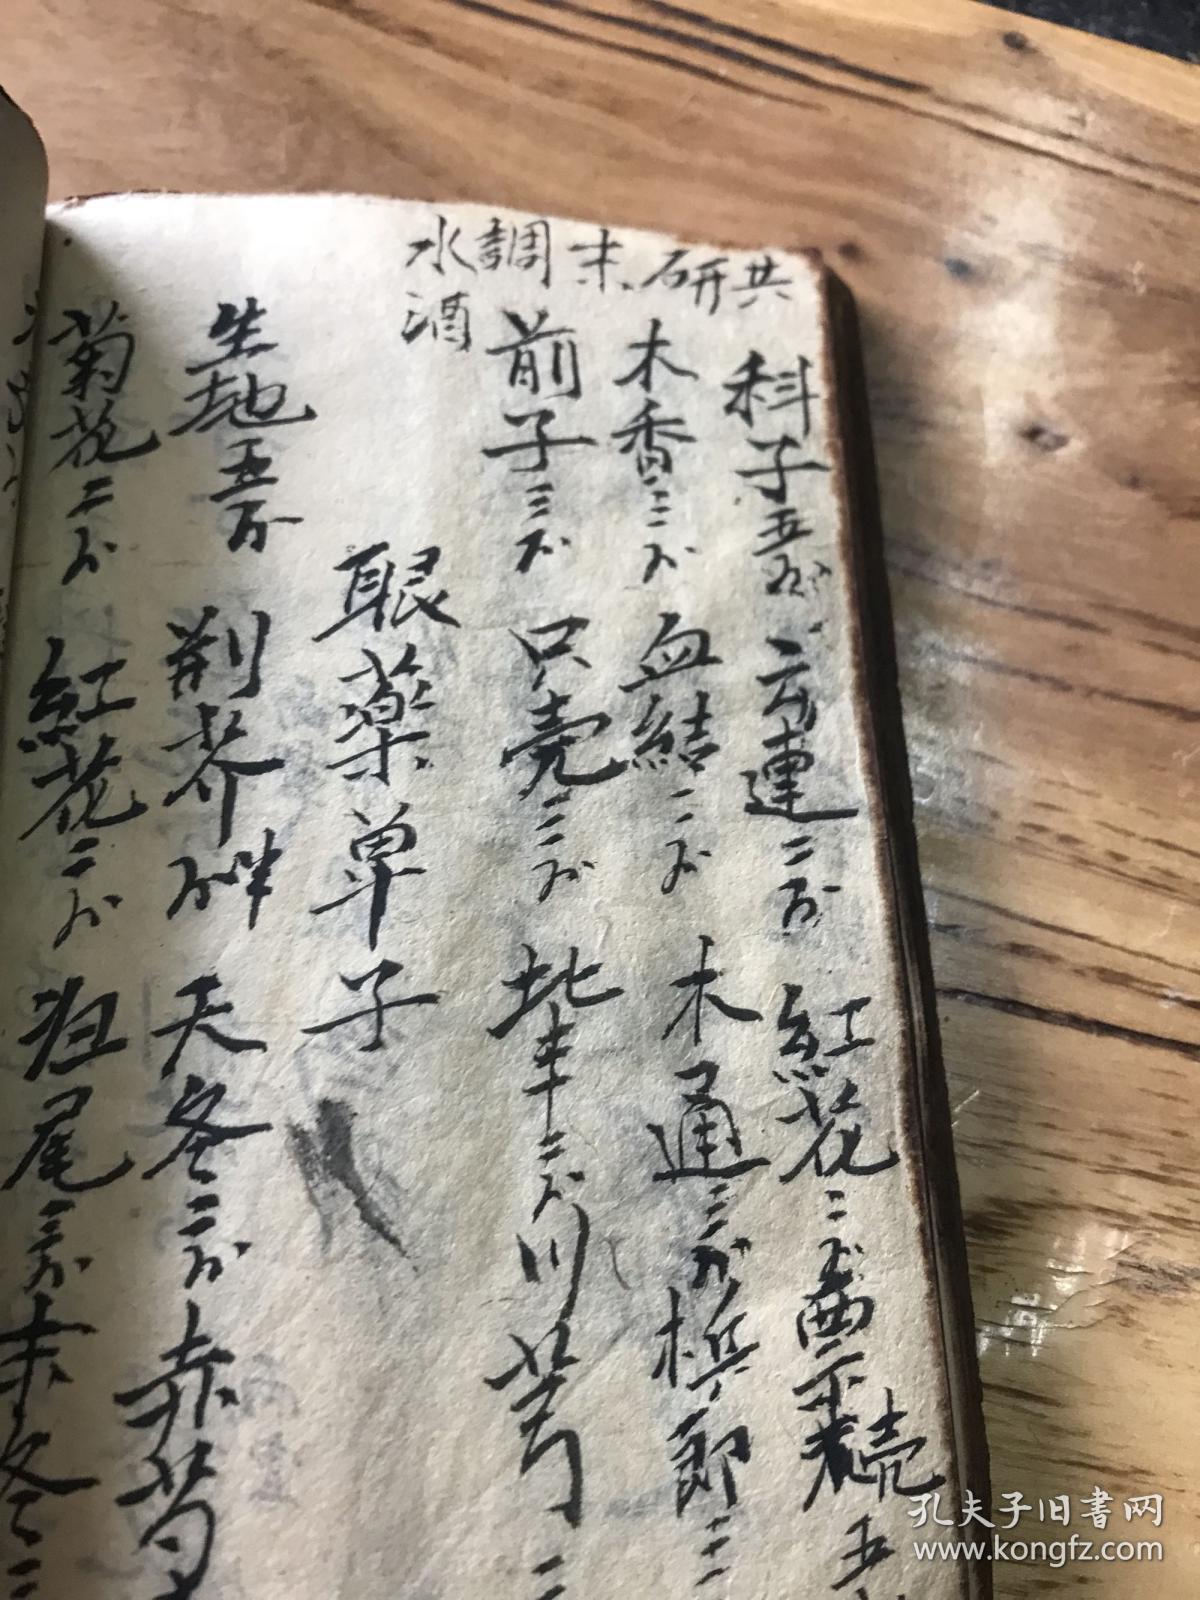 共研末調水酒
科子五分 云連二分 紅花二分 西
木香三分 血結二分 木通三分 梹郎三
前子三分 只壳三分 北辛二分 川芎二
眼藥單子
生地五分 荆芥分半 天冬二分 赤芍
菊花二分 紅花二分 归尾三分 麦冬二
孔夫子旧书网
www.kongfz.com